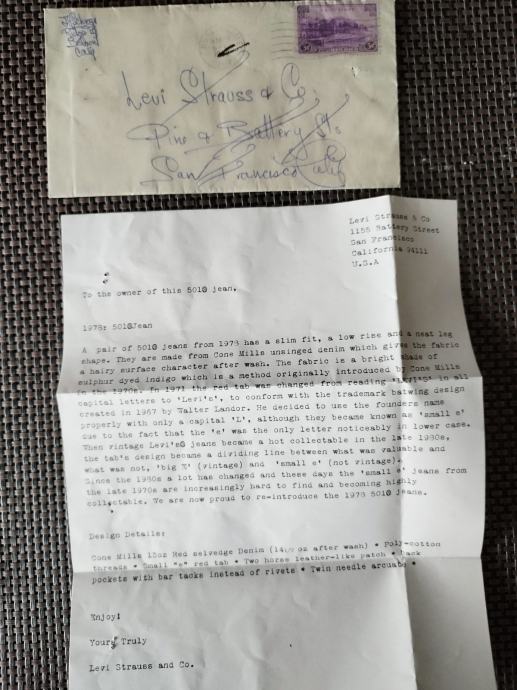 Levi Strauss & Co.
Pine & Battery Sts
San Francisco Calif
Levi Strauss & Co
1155 Battery Street
San Francisco
California 94111
U.S.A
To the owner of this 501® jean,
1978: 501®Jean
A pair of 501® jeans from 1978 has a slim fit, a low rise and a neat leg
shape. They are made from Cone Mills unsinged denim which gives the fabric
a hairy surface character after wash. The fabric is a bright shade of
sulphur dyed indigo which is a method originally introduced by Cone Mills
in the 1970s. In 1971 the red tab was changed from reading 'LEVI'S' in all
capital letters to 'Levi's', to conform with the trademark batwing design
created in 1967 by Walter Landor. He decided to use the founders name
properly with only a capital 'L', although they became known as 'small e'
due to the fact that the 'e' was the only letter noticeably in lower case.
When vintage Levi's® jeans became a hot collectable in the late 1980s,
the tab's design became a dividing line between what was valuable and
what was not, 'big E' (vintage) and 'small e' (not vintage).
Since the 1980s a lot has changed and these days the 'small e' jeans from
the late 1970s are increasingly hard to find and becoming highly
collectable. We are now proud to re-introduce the 1978 501® jeans.
Design Details:
Cone Mills 13oz Red selvedge Denim ( oz after wash) * Poly-cotton
threads * Small "e" red tab * Two horse leather-like patch * Back
pockets with bar tacks instead of rivets * Twin needle arcuate *
Enjoy!
Yours Truly
Levi Strauss and Co.